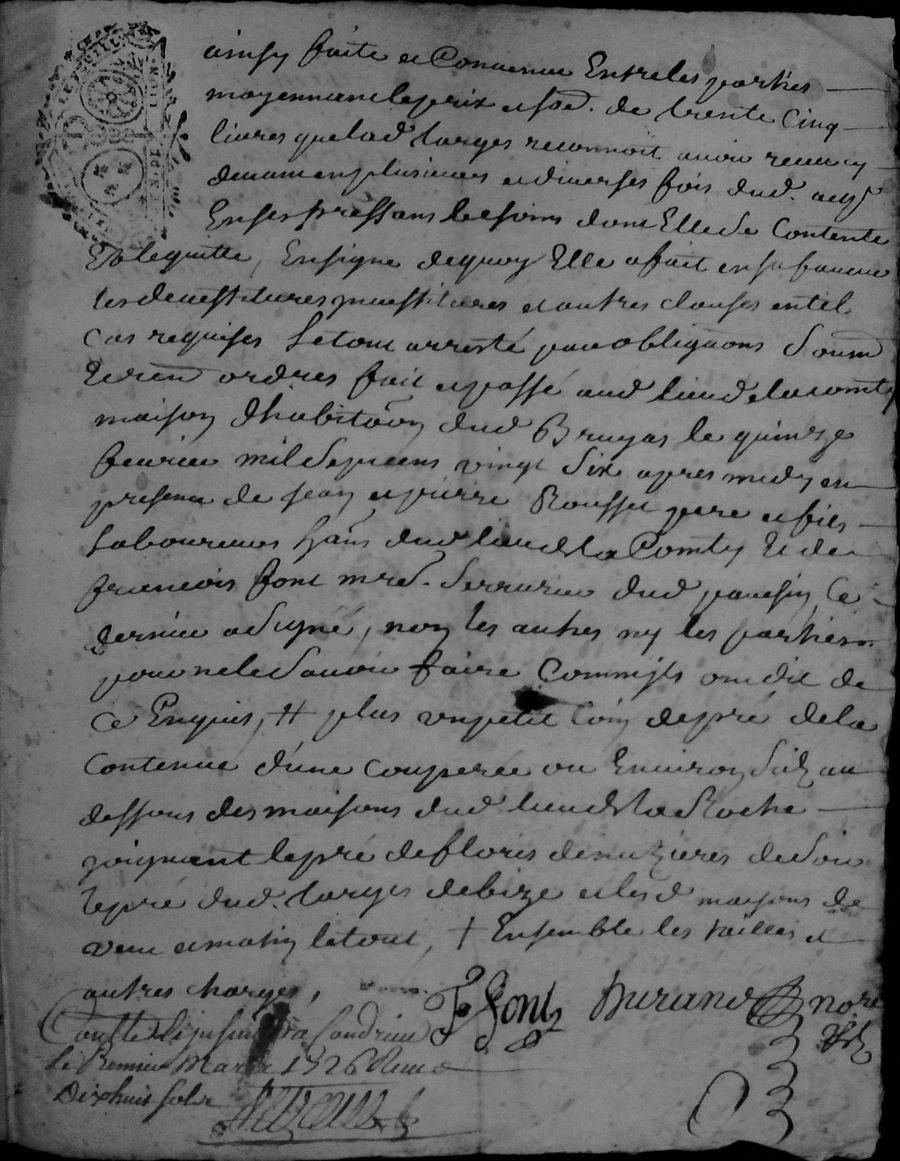 ainsy faite et Convenue Entre les parties
moyennant le prix et so.e de trente Cinq
livres que lad Larges reconnoit avoir receu cy
devant en plusieurs et diverses fois dud
En ses pressans besoins dont Elle Se Contente
Et le quitte, En signe de quoy Elle a fait en sa faveur
les devestitures investitures et autres clauses en tel
Cas requises Le tout arresté par obligaons
ordres fait et passé aud lieu de la comté
maison dhabitaon dud Bruyas le quinze
fevrier mil Sept cens vingt Six apres midy en
presence de Jean et pierre Rousset pere et fils
Laboureurs hans dud lieu de la Comty Et de
francois font mre Serrurier dud Ce
dernier a Signé, non les autres ny les parties
pour ne le Savoir faire
Ce Enquis, # plus un petit Coin de pré de la
Contenue d'une couperée ou Environ
dessous des maisons dud lieu de la Roche
joignant le pré de floris de Soir
le pré dud. Larges de bize et lesd maisons de
vent et matin le tout, + Ensemble les tailles et
autres charges,
F font Durand nore
a Condrieu
le Premier Mars 1726
Dixhuit sols